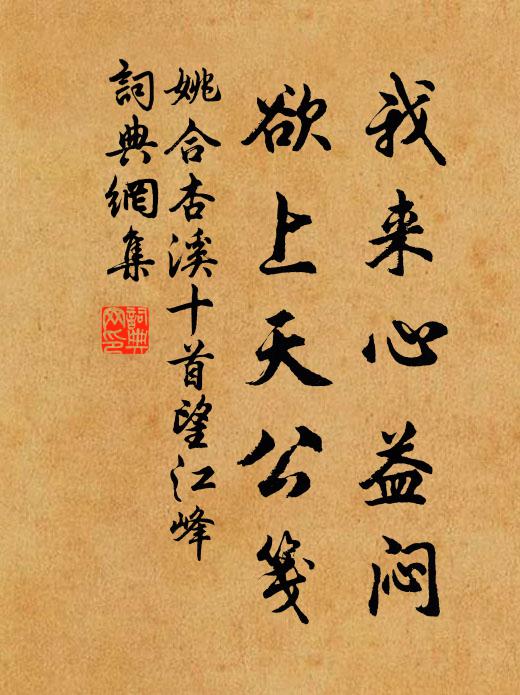 我来心益闷
欲上天公笺
姚合杏溪十首望江峰
詞典網集
詞典網印